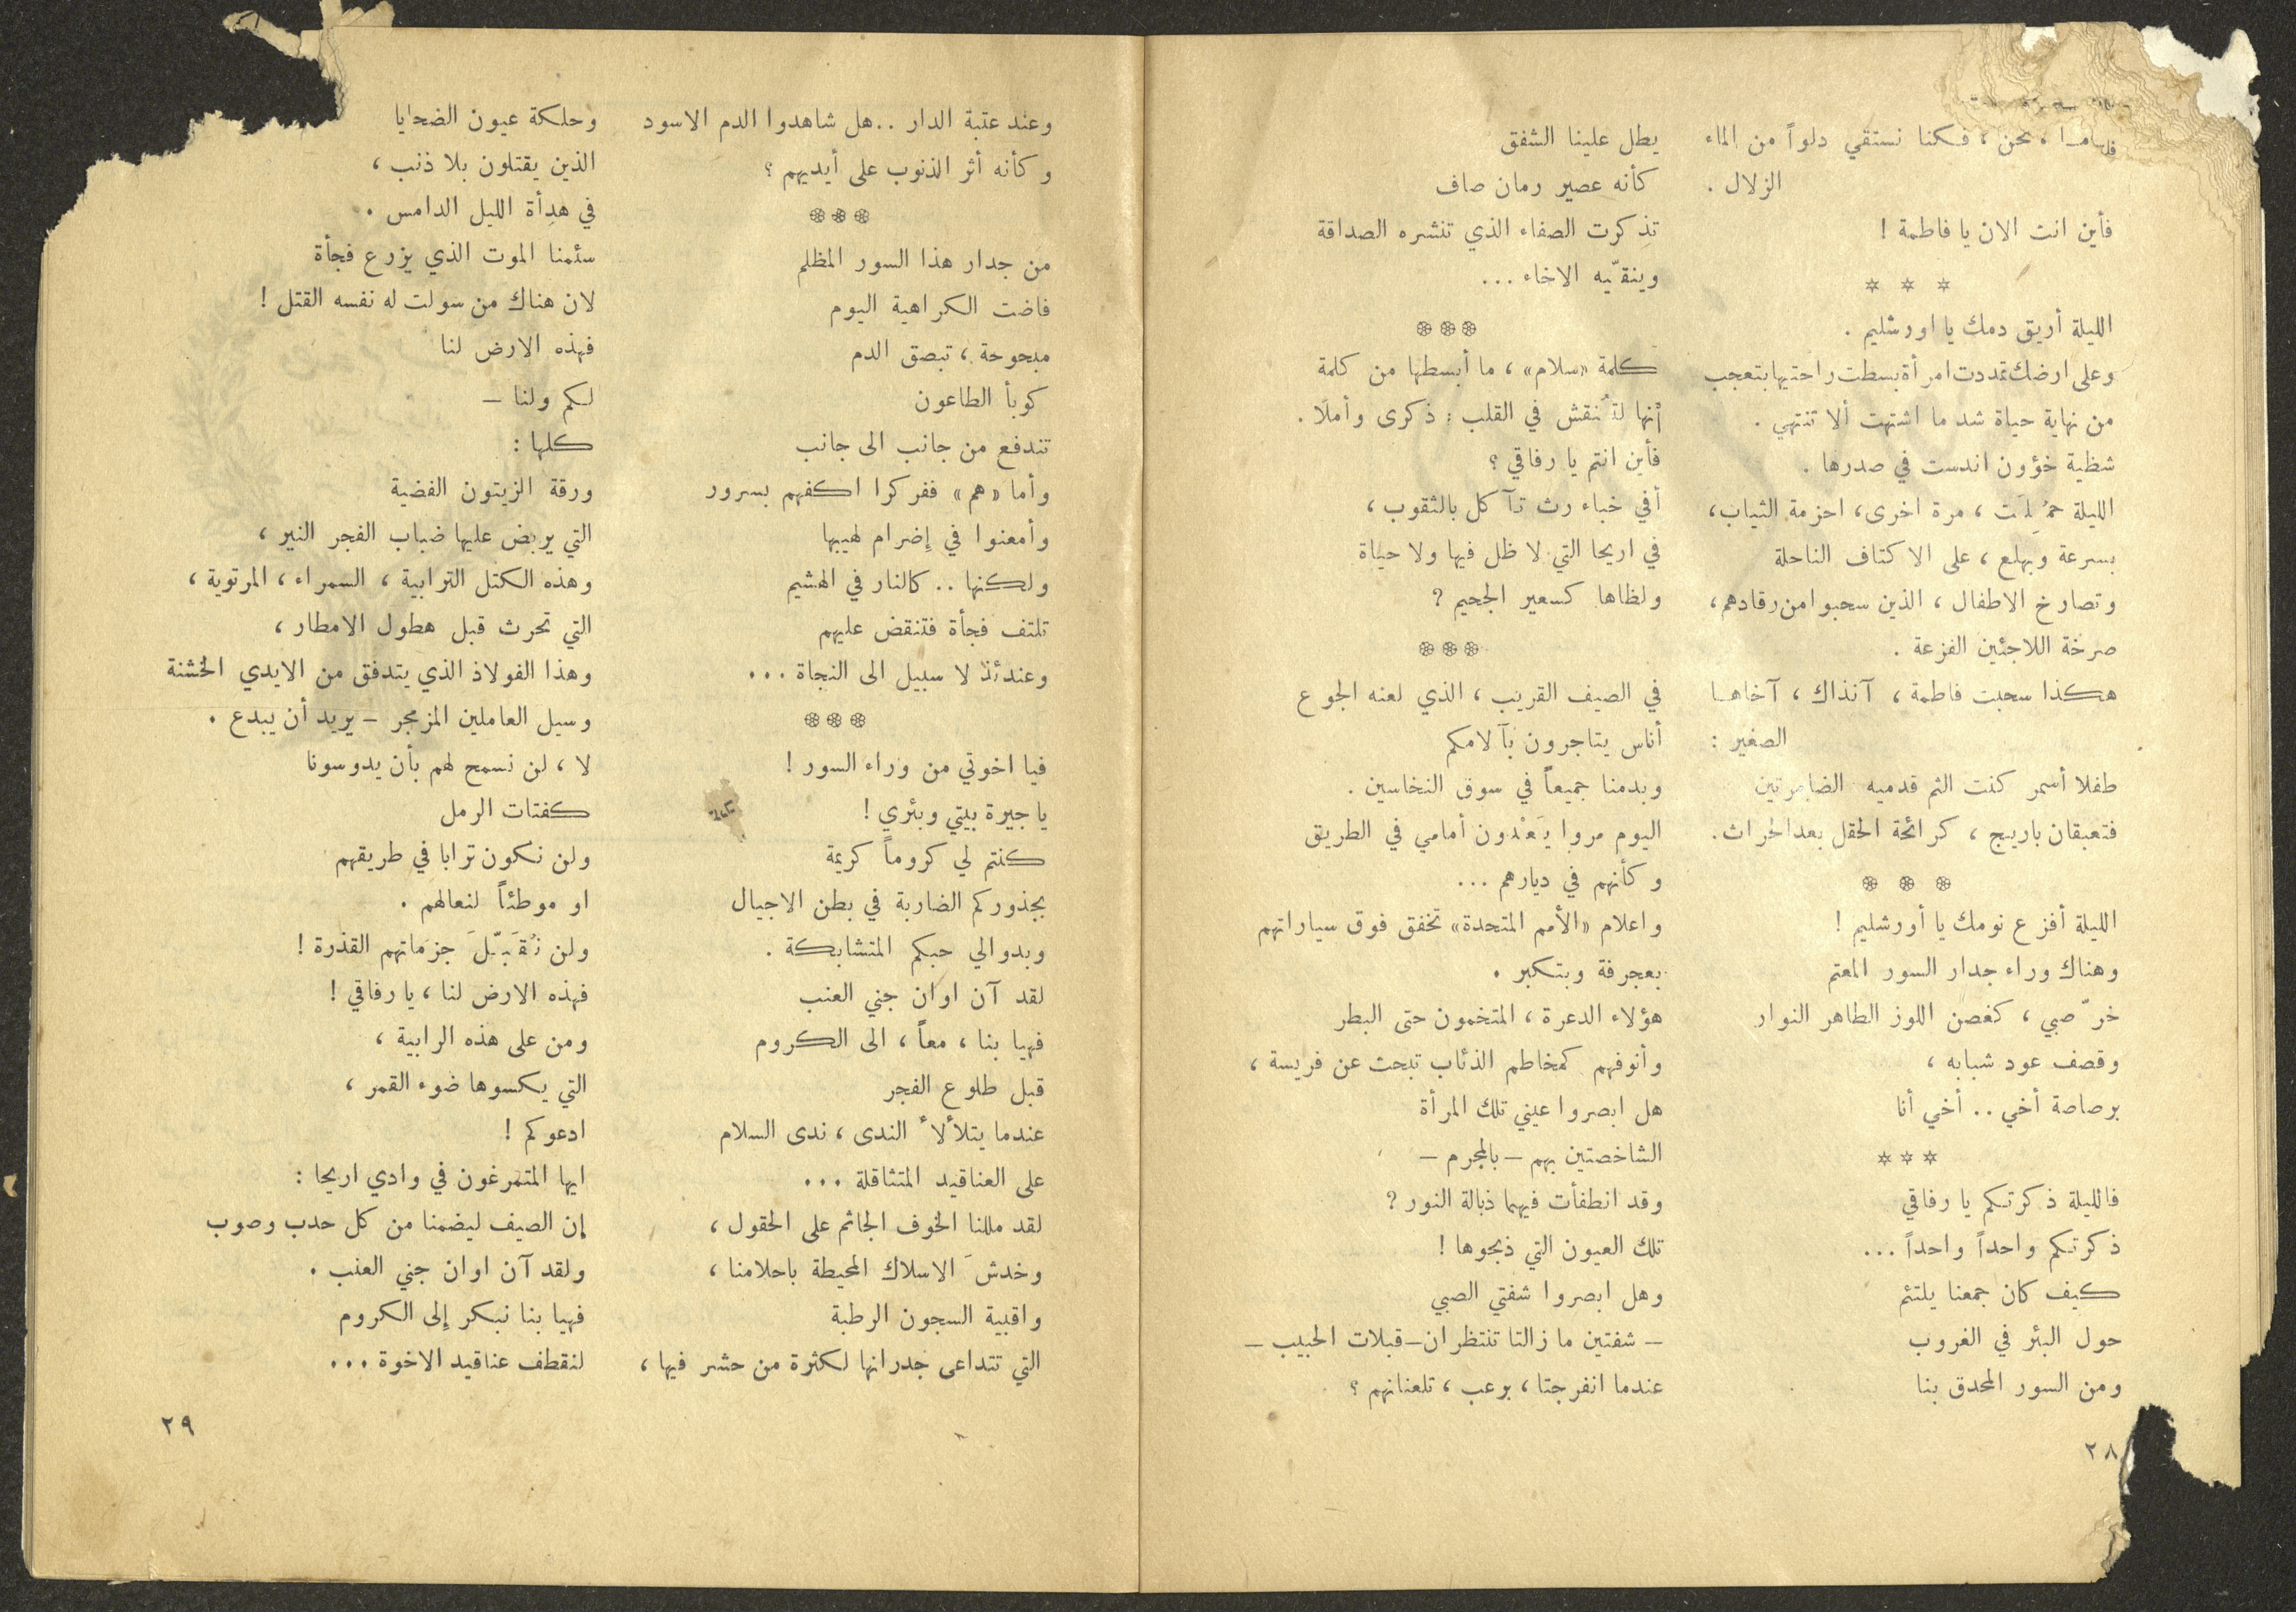 نحن ، فكنا نستقي دلواً من الماء
الزلال .
فأين انت الان يا فاطمة !
✲ ✲ ✲
الليلة أريق دمك يا اورشليم .
وعلى ارضك تمددت امرأة بسطت راحتيها بتعجب
من نهاية حياة شد ما اشتهت ألا تنتهي .
شظية خؤون اندست في صدرها .
الليلة حُمِلَت ، مرة اخرى ، احزمة الثياب ،
بسرعة وبهلع ، على الاكتاف الناحلة
وتصارخ الاطفال ، الذين سحبوا من رقادهم ،
صرخة اللاجئين الفزعة .
هكذا سحبت فاطمة ، آنذاك ، آخاها
الصغير :
طفلا أسمر كنت الثم قدميه الضامرتين
فتعبقان باريج ، كرائحة الحقل بعد الحراث .
❁ ❁ ❁
الليلة أفزع نومك يا أورشليم !
وهناك وراء جدار السور المعتم
خرّ صبي ، كغصن اللوز الطاهر النوار
وقصف عود شبابه ،
برصاصة أخي .. أخي أنا
✲✲✲
فالليلة ذكرتكم يا رفاقي
ذكرتكم واحداً واحداً ...
كيف كان جمعنا يلتئم
حول البئر في الغروب
ومن السور المحدق بنا
يطل علينا الشفق
كأنه عصير رمان صاف
تذكرت الصفاء الذي تنشره الصداقة
وينقّيه الاخاء ...
❁❁❁
كلمة «سلام» ، ما أبسطها من كلمة
أنها لتُنقش في القلب : ذكرى وأملًا .
فأين انتم يا رفاقي ؟
أفي خباء رث تآكل بالثقوب ،
في اريحا التي لا ظل فيها ولا حياة
ولظاها كسعير الجحيم ؟
❁❁❁
في الصيف القريب ، الذي لعنه الجوع
أناس يتاجرون بآلامكم
وبدمنا جميعاً في سوق النخاسين .
اليوم مروا يَعْدون أمامي في الطريق
وكأنهم في ديارهم ...
واعلام «الأمم المتحدة» تخفق فوق سياراتهم
بعجرفة وبتكبر .
هؤلاء الدعرة ، المتخمون حتى البطر
وأنوفهم كمخاطم الذئاب تبحث عن فريسة ،
هل ابصروا عيني تلك المرأة
الشاخصتين بهم — بالمجرم —
وقد انطفأت فيهما ذبالة النور ؟
تلك العيون التي ذبحوها !
وهل ابصروا شفتي الصبي
— شفتين ما زالتا تنتظران — قبلات الحبيب —
عندما انفرجتا ، برعب ، تلعنانهم ؟
٢٨
وعند عتبة الدار .. هل شاهدوا الدم الاسود
وكأنه أثر الذنوب على أيديهم ؟
❁❁❁
من جدار هذا السور المظلم
فاضت الكراهية اليوم
مبحوحة ، تبصق الدم
كوبأ الطاعون
تندفع من جانب الى جانب
وأما «هم» ففركوا اكفهم بسرور
وأمعنوا في إضرام لهيبها
ولكنها .. كالنار في الهشيم
تلتف فجأة فتنقض عليهم
وعندئذ لا سبيل الى النجاة ...
❁❁❁
فيا اخوتي من وراء السور !
يا جيرة بيتي وبئري !
كنتم لي كروماً كريمة
بجذوركم الضاربة في بطن الاجيال
وبدوالي حبكم المتشابكة .
لقد آن اوان جني العنب
فهيا بنا ، معاً ، الى الكروم
قبل طلوع الفجر
عندما يتلألأ الندى ، ندى السلام
على العناقيد المتثاقلة ...
لقد مللنا الخوف الجاثم على الحقول ،
وخدشَ الاسلاك المحيطة باحلامنا ،
واقبية السجون الرطبة
التي تتداعى جدرانها لكثرة من حشر فيها ،
وحلكة عيون الضحايا
الذين يقتلون بلا ذنب ،
في هدأة الليل الدامس .
سئمنا الموت الذي يزرع فجأة
لان هناك من سولت له نفسه القتل !
فهذه الارض لنا
لكم ولنا —
كلها :
ورقة الزيتون الفضية
التي يربض عليها ضباب الفجر النير ،
وهذه الكتل الترابية ، السمراء ، المرتوية ،
التي تحرث قبل هطول الامطار ،
وهذا الفولاذ الذي يتدفق من الايدي الخشنة
وسيل العاملين المزمجر — يريد أن يبدع .
لا ، لن نسمح لهم بأن يدوسونا
كفتات الرمل
ولن نكون ترابا في طريقهم
او موطئاً لنعالهم .
ولن نُقَبّلَ جزماتهم القذرة !
فهذه الارض لنا ، يا رفاقي !
ومن على هذه الرابية ،
التي يكسوها ضوء القمر ،
ادعوكم !
ايها المتمرغون في وادي اريحا :
إن الصيف ليضمنا من كل حدب وصوب
ولقد آن اوان جني العنب .
فهيا بنا نبكر إلى الكروم
لنقطف عناقيد الاخوة ...
٢٩